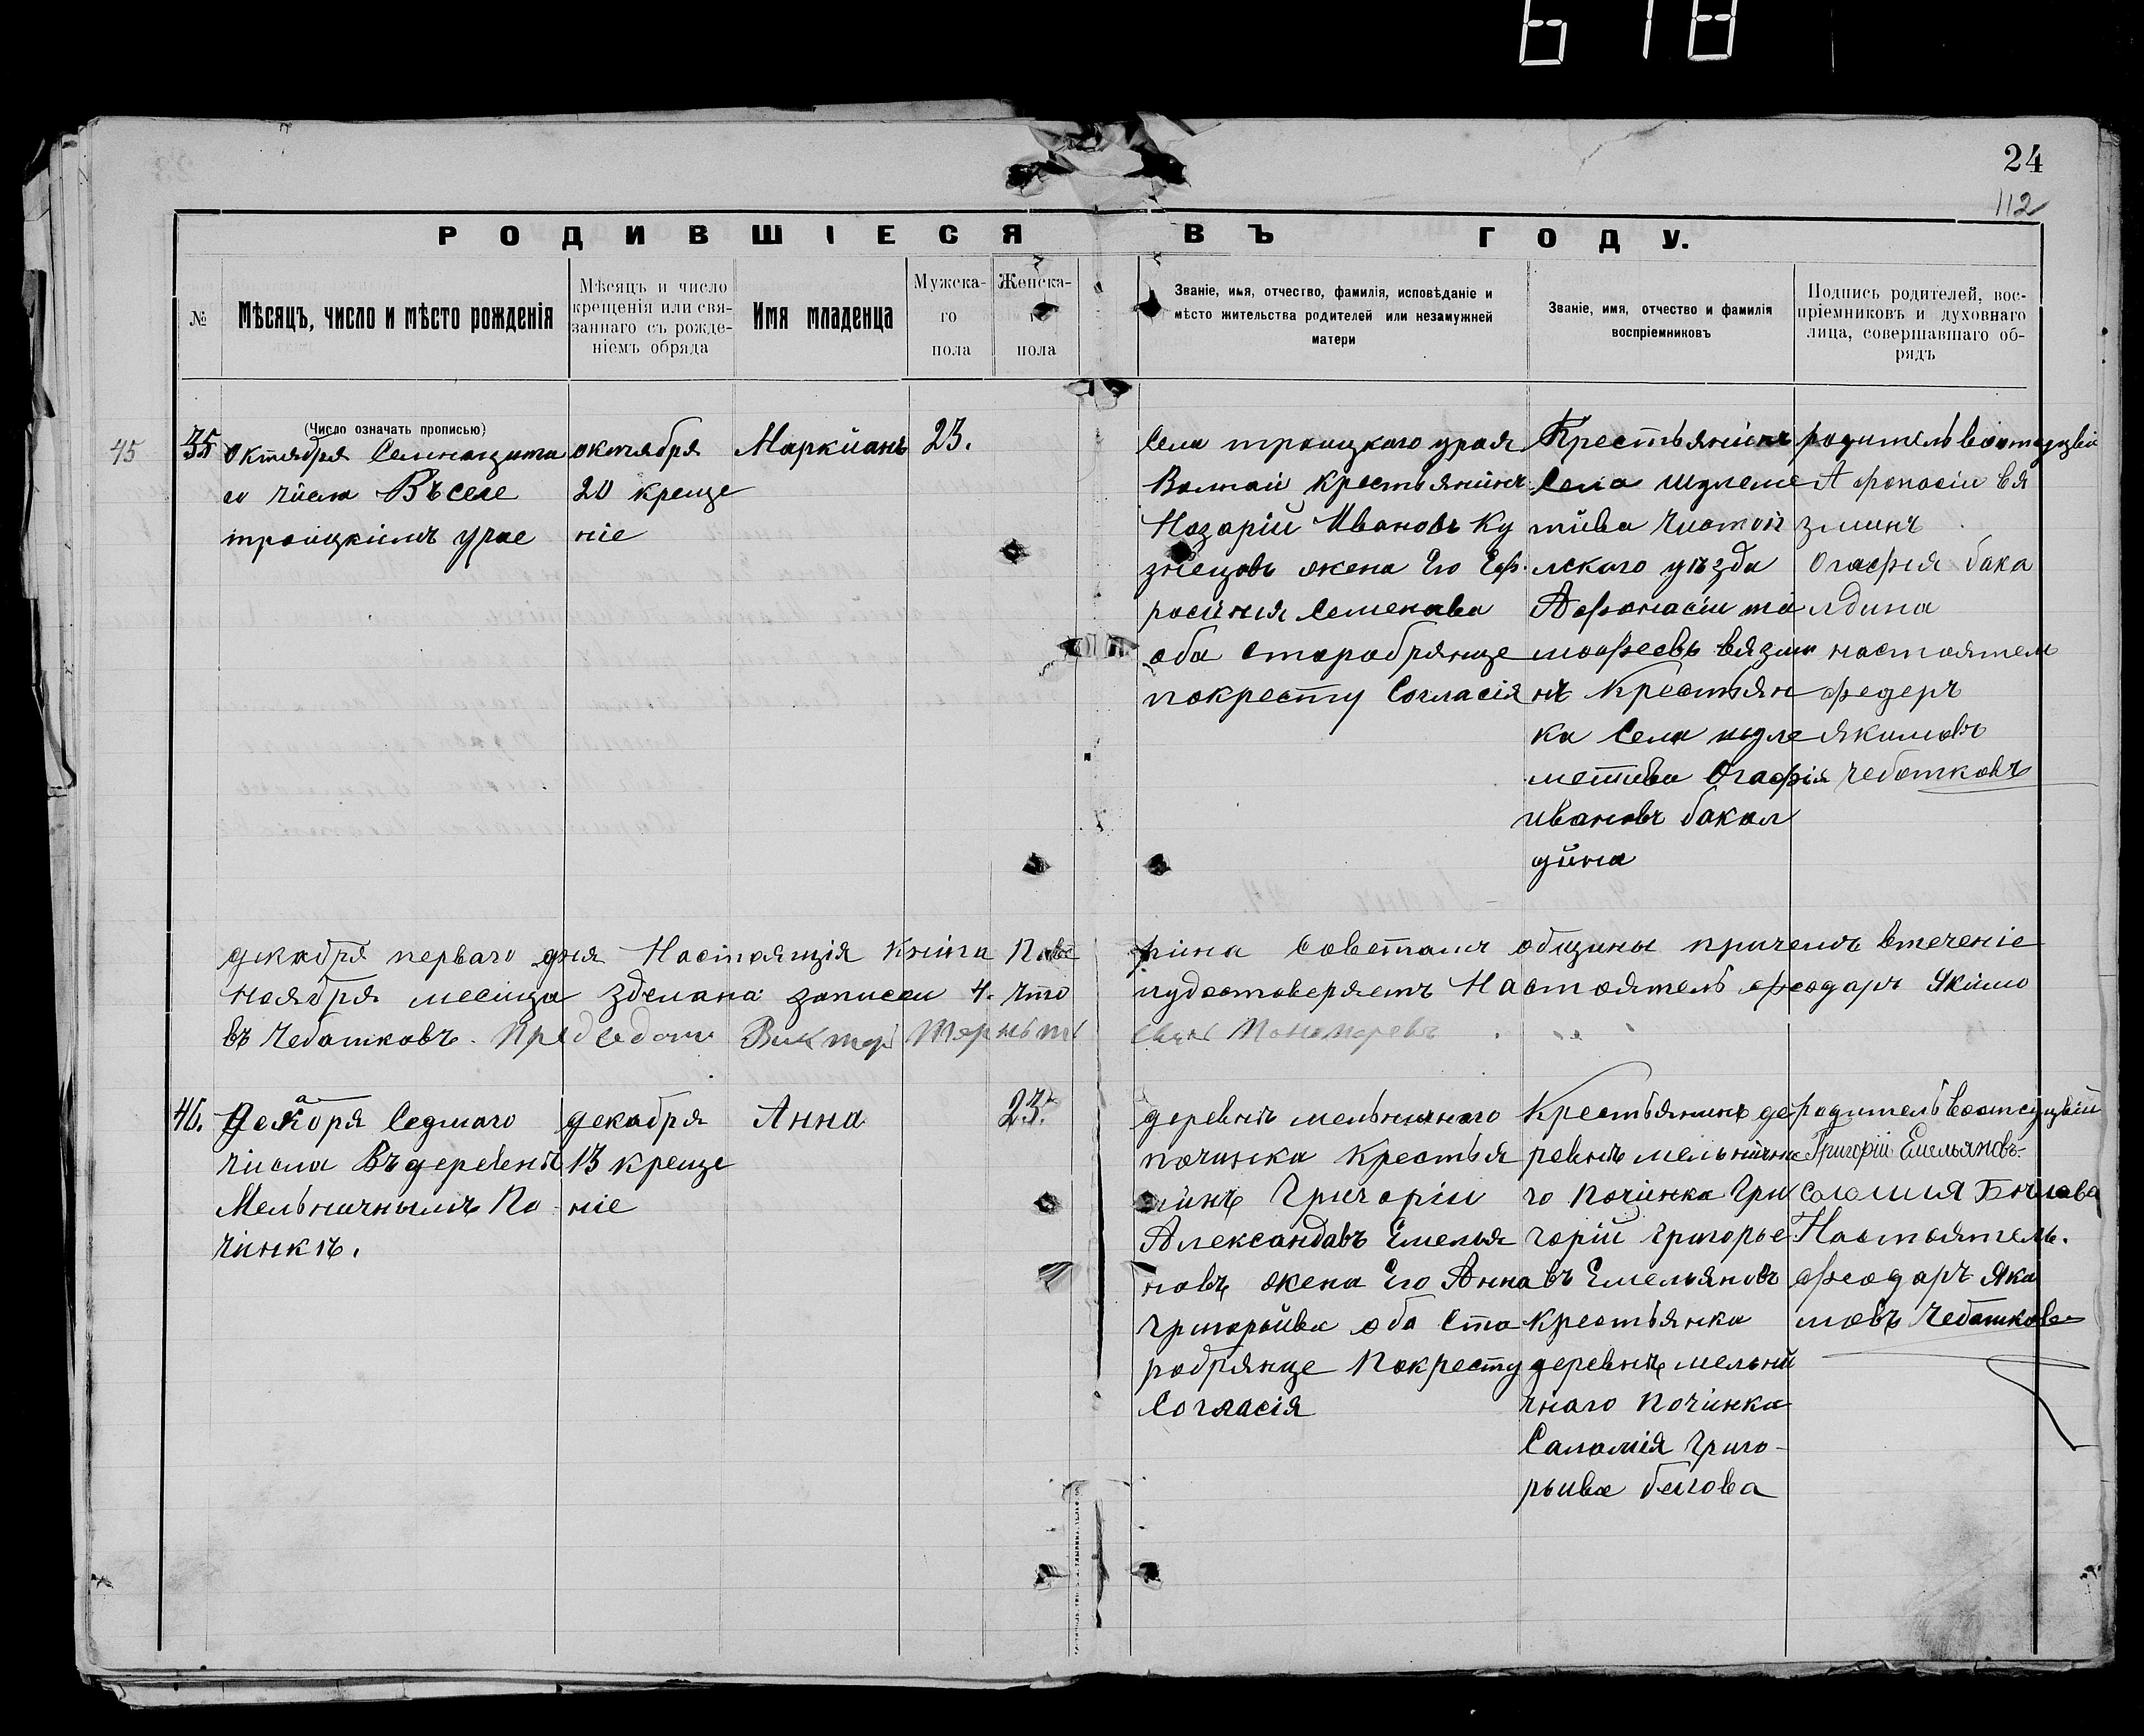 618
24
112
РОДИВШІЕСЯ ВЪ ГОДУ.
№
Мѣсяцъ, число и мѣсто рожденія
Мѣсяцъ и число
крещенія или свя-
заннаго съ рожде-
ніемъ обряда
Имя младенца
Мужска-
го
пола
Женска-
го
пола
Званіе, имя, отчество, фамилія, исповѣданіе и
мѣсто жительства родителей или незамужней
матери
Званіе, имя, отчество и фамилія
воспріемниковъ
Подпись родителей, вос-
пріемниковъ и духовнаго
лица, совершавшаго об-
рядъ
(Число означать прописью)
45
35
октября Семнацата
го числа Въ селе
троицкимъ урае
октября
20 креще
ніе
Маркианъ
23.
Села троицкаго урая
Крестьянинъ
Назарій Ивановъ Ку
знецовъ жена Его Еф
росиния Семенова
оба старобрянце
покресту Согласія
Крестьянинъ
Села шулеме
тива Чистоп
лскаго уѣзда
Афонасіи ти
мофеевъ вязми
нъ Крестьян
ка Села шуле
метива Огафія
ивановъ бакал
дина
родитель
Афонасіи вя
зминъ
Огафия бака
лдина
настоятел
федеръ
якимовъ
чебатковъ
декабря перваго дня Настоящія книга Пове
рина Советамъ общины причемъ втеченіе
ноября месица зделана записеи 4. что
иудостоверяетъ Настоятель феодаръ Якимо
въ Чебатковъ. Виктор Пономаревъ
46.
Декабря Седмаго
числа Въ деревенѣ
Мельничнымъ По
чинкѣ.
декабря
13 креще
ніе
Анна
23.
деревнѣ мельничнаго
починка Крестья
нинъ Григоріи
Александавъ Емелья
новъ жена Его Анна
григорьива оба Ста
робрянце Покресту
Согласія
Крестьянинъ де
ревнѣ мельнична
го Починка Гри
горій григорье
въ Емельяновъ
Крестьянка
деревнѣ мельни
чнаго Починка
Саламія Григо-
рьива белова
родитель
Григорій Емельяновъ.
Соломия Бѣлова
Настоятель.
феодаръ Яки
мовъ Чебатковъ